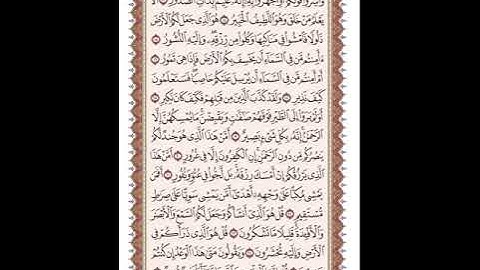 وَأَسِرُّوا۟ قَوْلَكُمْ أَوِ ٱجْهَرُوا۟ بِهِۦٓ ۖ إِنَّهُۥ عَلِيمٌۢ بِذَاتِ ٱلصُّدُورِ ۝ أَلَا
يَعْلَمُ مَنْ خَلَقَ وَهُوَ ٱللَّطِيفُ ٱلْخَبِيرُ ۝ هُوَ ٱلَّذِى جَعَلَ لَكُمُ ٱلْأَرْضَ
ذَلُولًا فَٱمْشُوا۟ فِى مَنَاكِبِهَا وَكُلُوا۟ مِن رِّزْقِهِۦ ۖ وَإِلَيْهِ ٱلنُّشُورُ ۝
ءَأَمِنتُم مَّن فِى ٱلسَّمَآءِ أَن يَخْسِفَ بِكُمُ ٱلْأَرْضَ فَإِذَا هِىَ تَمُورُ ۝
أَمْ أَمِنتُم مَّن فِى ٱلسَّمَآءِ أَن يُرْسِلَ عَلَيْكُمْ حَاصِبًا ۖ فَسَتَعْلَمُونَ
كَيْفَ نَذِيرِ ۝ وَلَقَدْ كَذَّبَ ٱلَّذِينَ مِن قَبْلِهِمْ فَكَيْفَ كَانَ نَكِيرِ ۝
أَوَلَمْ يَرَوْا۟ إِلَى ٱلطَّيْرِ فَوْقَهُمْ صَٰٓفَّٰتٍ وَيَقْبِضْنَ ۚ مَا يُمْسِكُهُنَّ إِلَّا
ٱلرَّحْمَٰنُ ۚ إِنَّهُۥ بِكُلِّ شَىْءٍۭ بَصِيرٌ ۝ أَمَّنْ هَٰذَا ٱلَّذِى هُوَ جُندٌ لَّكُمْ
يَنصُرُكُم مِّن دُونِ ٱلرَّحْمَٰنِ ۚ إِنِ ٱلْكَٰفِرُونَ إِلَّا فِى غُرُورٍ ۝ أَمَّنْ هَٰذَا
ٱلَّذِى يَرْزُقُكُمْ إِنْ أَمْسَكَ رِزْقَهُۥ ۚ بَل لَّجُّوا۟ فِى عُتُوٍّ وَنُفُورٍ ۝ أَفَمَن
يَمْشِى مُكِبًّا عَلَىٰ وَجْهِهِۦٓ أَهْدَىٰٓ أَمَّن يَمْشِى سَوِيًّا عَلَىٰ صِرَٰطٍ
مُّسْتَقِيمٍ ۝ قُلْ هُوَ ٱلَّذِىٓ أَنشَأَكُمْ وَجَعَلَ لَكُمُ ٱلسَّمْعَ وَٱلْأَبْصَٰرَ
وَٱلْأَفْـِٔدَةَ ۖ قَلِيلًا مَّا تَشْكُرُونَ ۝ قُلْ هُوَ ٱلَّذِى ذَرَأَكُمْ فِى
ٱلْأَرْضِ وَإِلَيْهِ تُحْشَرُونَ ۝ وَيَقُولُونَ مَتَىٰ هَٰذَا ٱلْوَعْدُ إِن كُنتُمْ